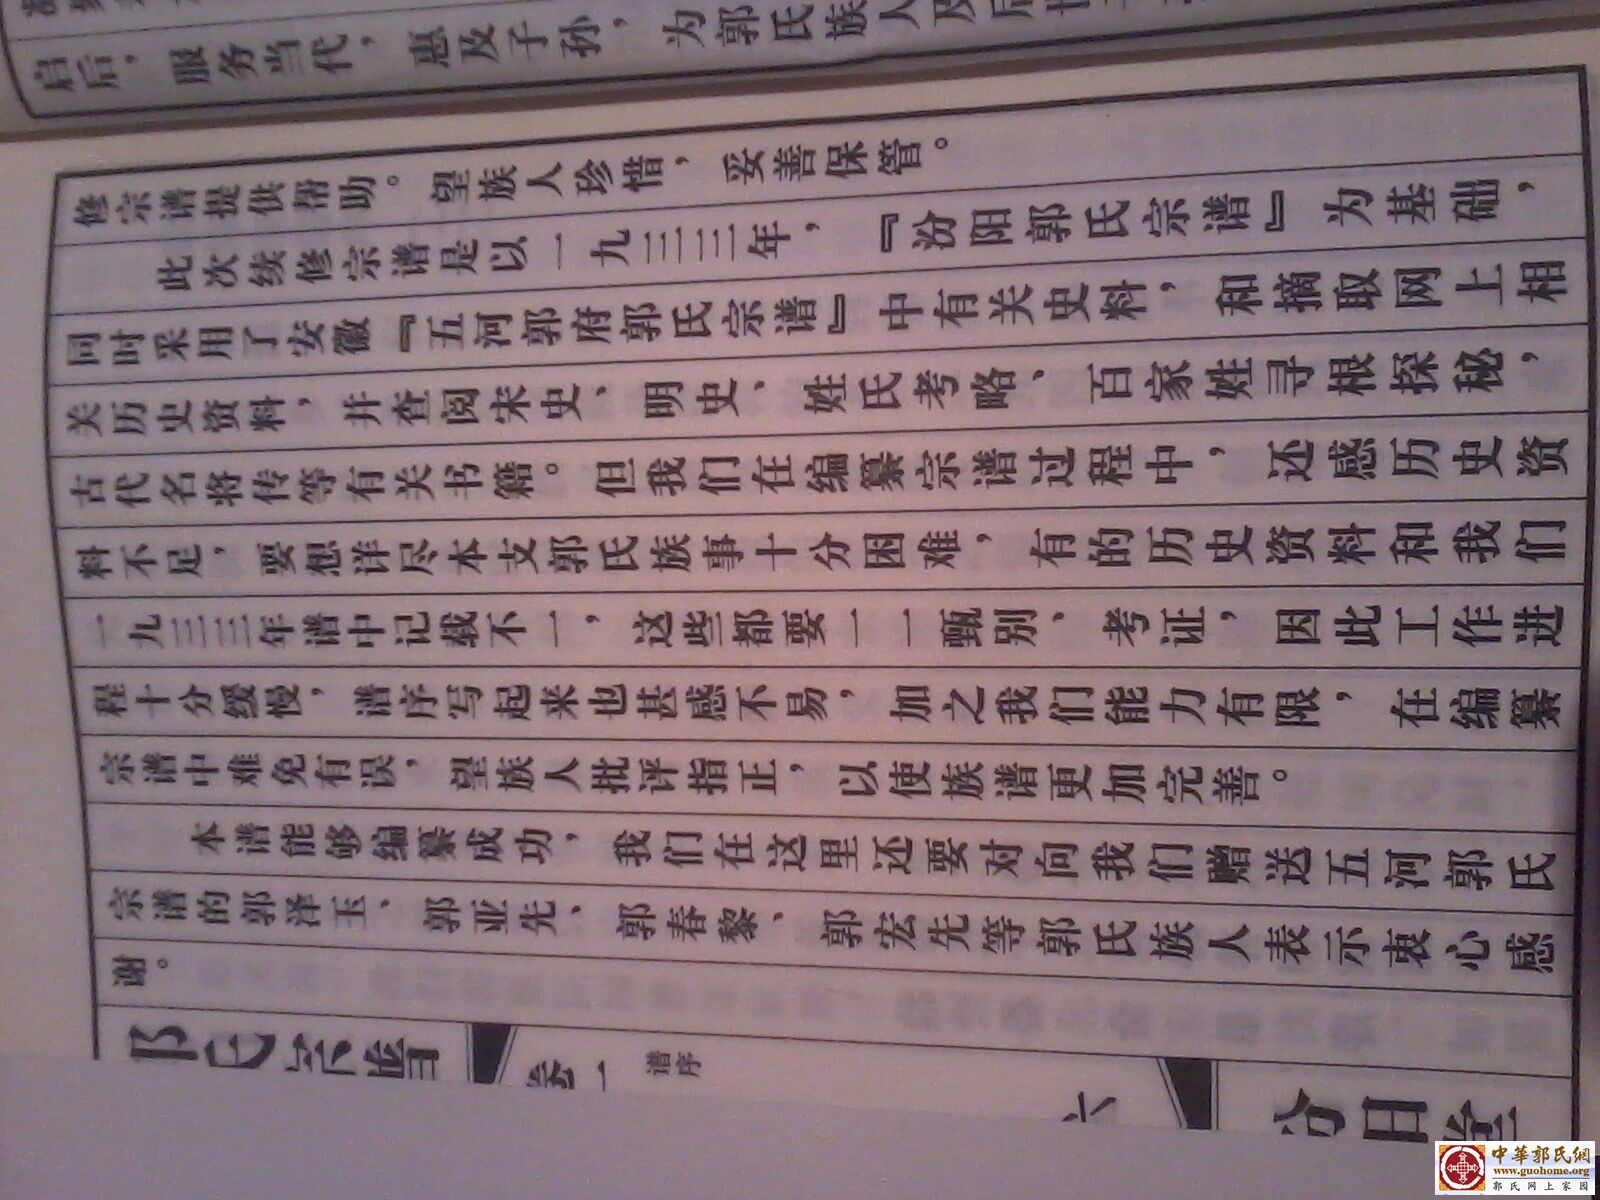 启后，服务当代，惠及子孙，为郭氏族人及后世
修宗谱提供帮助。望族人珍惜，妥善保管。
此次续修宗谱是以一九三三年，『汾阳郭氏宗谱』为基础，
同时采用了安徽『五河郭府郭氏宗谱』中有关史料，和摘取网上相
关历史资料，并查阅宋史、明史、姓氏考略、百家姓寻根探秘，
古代名将传等有关书籍。但我们在编纂宗谱过程中，还感历史资
料不足，要想详尽本支郭氏族事十分困难，有的历史资料和我们
一九三三年谱中记载不一，这些都要一一甄别、考证，因此工作进
程十分缓慢，谱序写起来也甚感不易，加之我们能力有限，在编纂
宗谱中难免有误，望族人批评指正，以使族谱更加完善。
本谱能够编纂成功，我们在这里还要对向我们赠送五河郭氏
宗谱的郭泽玉、郭亚先、郭春黎、郭宏先等郭氏族人表示衷心感
谢。
郭氏宗谱
卷一
谱序
六
中華郭氏網
www.guohome.org
郭氏网上家园